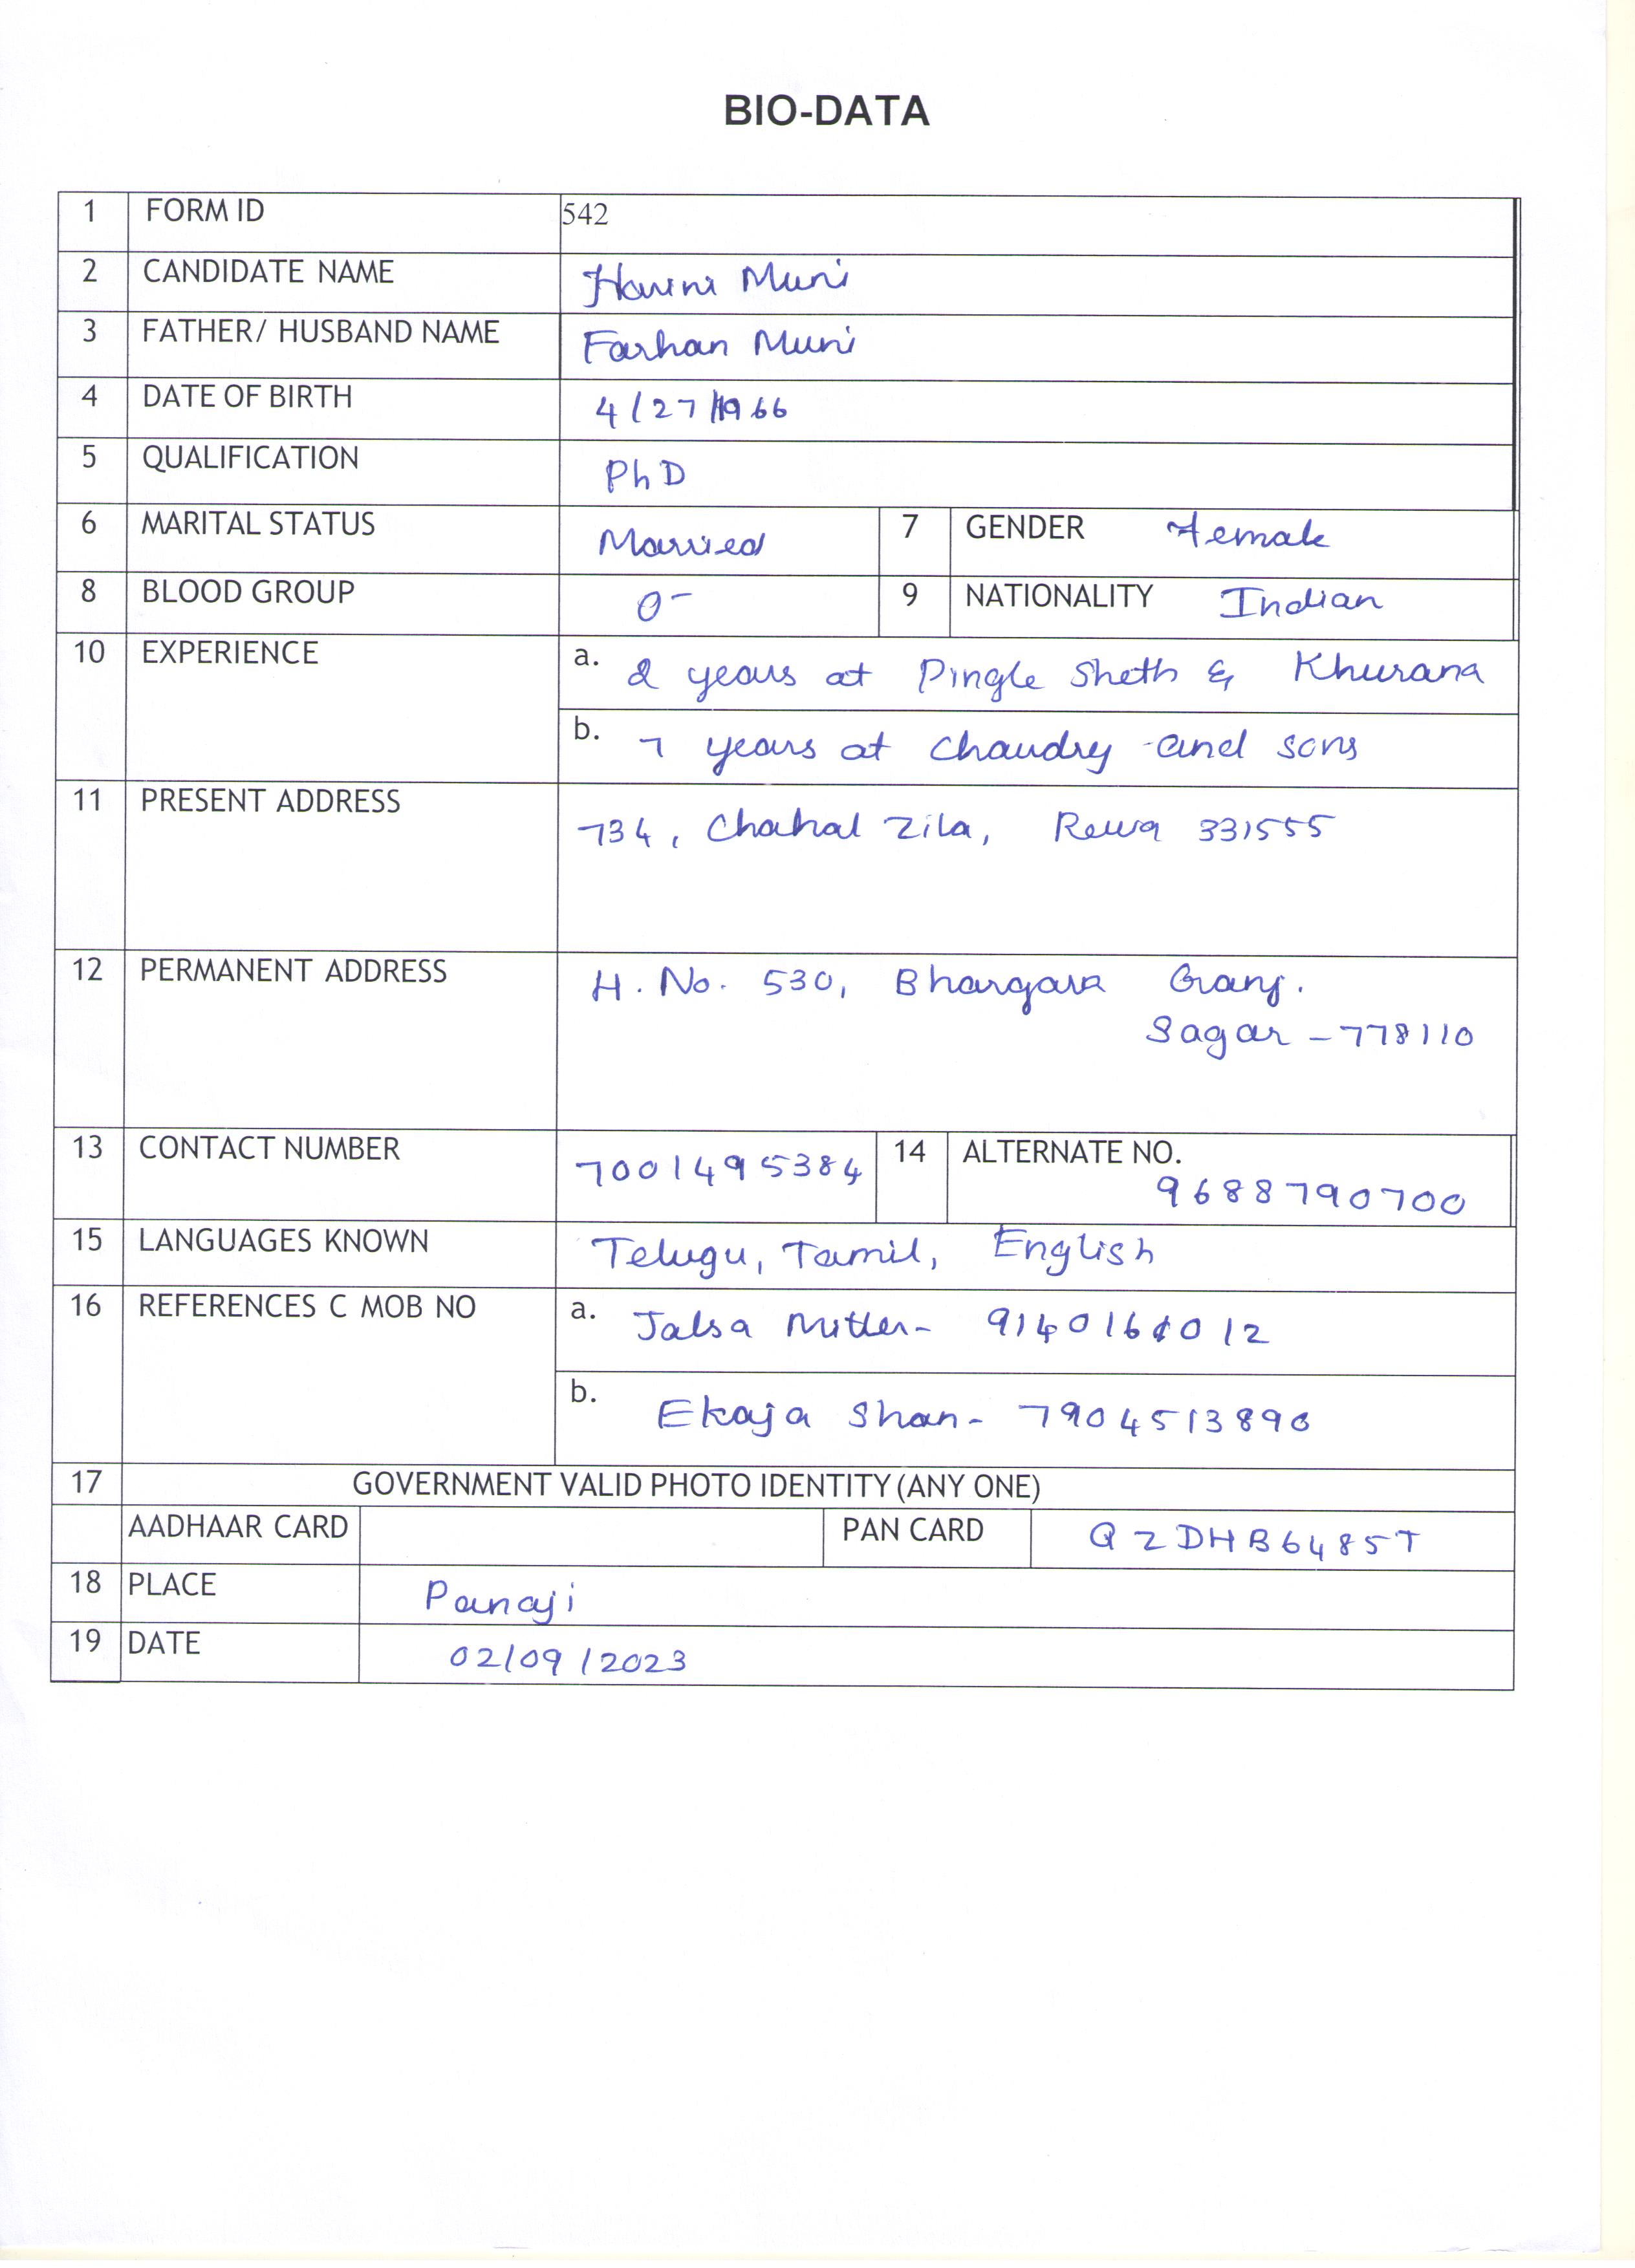 BIO-DATA
1 FORM ID 542
2 CANDIDATE NAME Harini Muni
3 FATHER/ HUSBAND NAME Farhan Muni
4 DATE OF BIRTH 4/27/1966
5 QUALIFICATION PhD
6 MARITAL STATUS Married 7 GENDER Female
8 BLOOD GROUP O- 9 NATIONALITY Indian
10 EXPERIENCE a. 2 years at Pingle Sheth & Khurana
b. 7 years at Chaudry and sons
11 PRESENT ADDRESS 734, Chahal Zila, Rewa 331555
12 PERMANENT ADDRESS H. No. 530, Bhargava Ganj.
Sagar - 778110
13 CONTACT NUMBER 7001495384 14 ALTERNATE NO.
9688790700
15 LANGUAGES KNOWN Telugu, Tamil, English
16 REFERENCES C MOB NO a. Jalsa -
b. Ekaja Shan -
17 GOVERNMENT VALID PHOTO IDENTITY (ANY ONE)
AADHAAR CARD PAN CARD QZDHB6485T
18 PLACE Panaji
19 DATE 02/09/2023